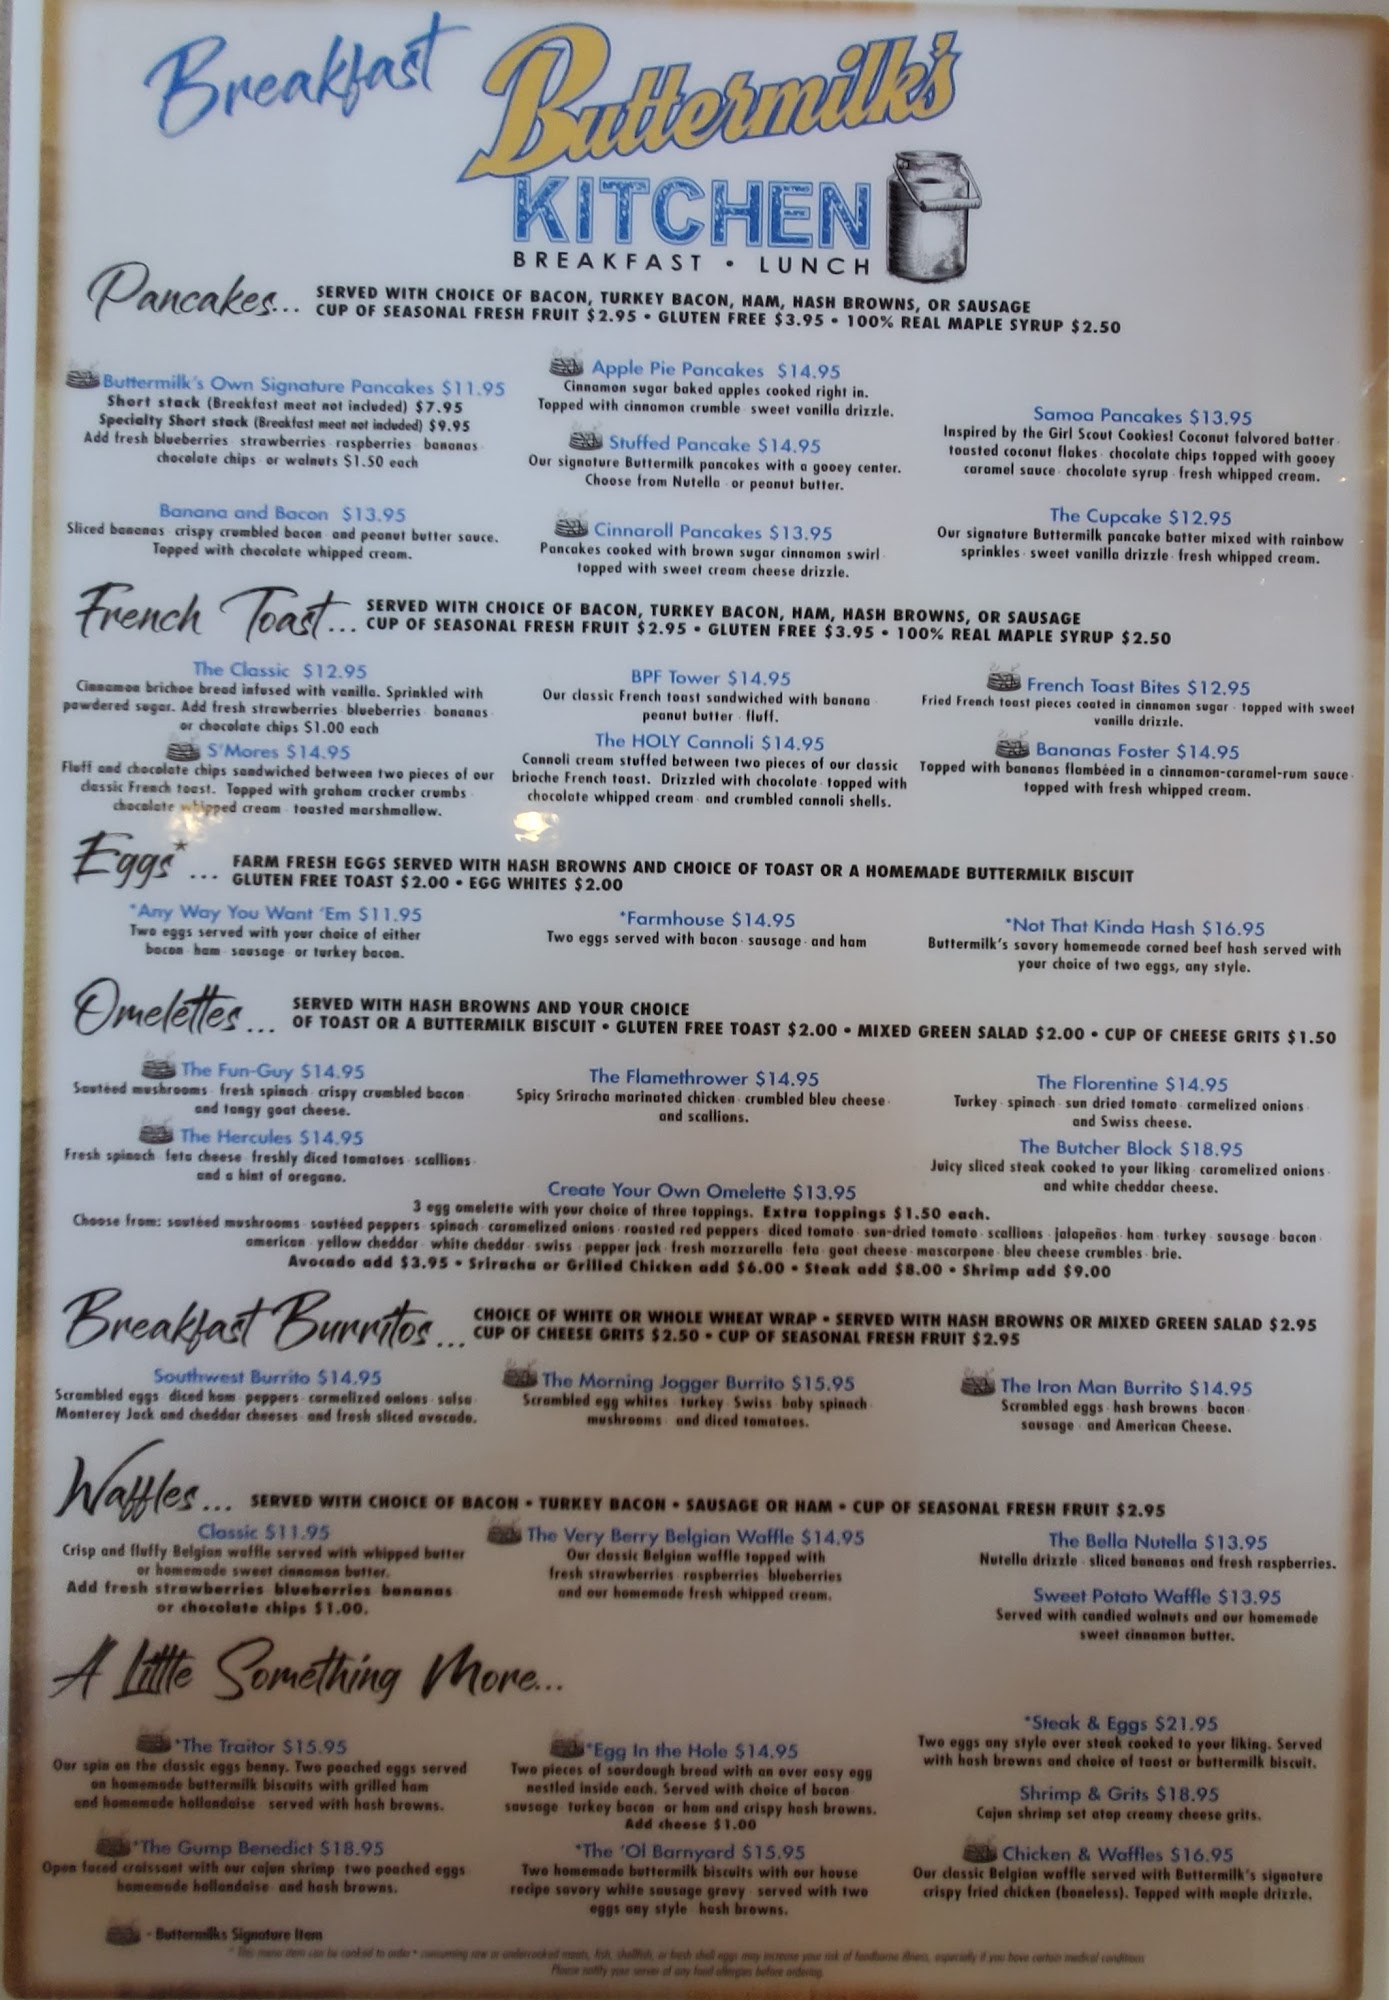 Breakfast
Buttermilk's
KITCHEN
BREAKFAST • LUNCH
Pancakes...
SERVED WITH CHOICE OF BACON, TURKEY BACON, HAM, HASH BROWNS, OR SAUSAGE
CUP OF SEASONAL FRESH FRUIT $2.95 • GLUTEN FREE $3.95 • 100% REAL MAPLE SYRUP $2.50
Buttermilk's Own Signature Pancakes $11.95
Short stack (Breakfast meat not included) $7.95
Specialty Short stack (Breakfast meat not included) $9.95
Add fresh blueberries · strawberries · raspberries · bananas ·
chocolate chips · or walnuts $1.50 each
Banana and Bacon $13.95
Sliced bananas · crispy crumbled bacon · and peanut butter sauce.
Topped with chocolate whipped cream.
Apple Pie Pancakes $14.95
Cinnamon sugar baked apples cooked right in.
Topped with cinnamon crumble · sweet vanilla drizzle.
Stuffed Pancake $14.95
Our signature Buttermilk pancakes with a gooey center.
Choose from Nutella · or peanut butter.
Cinnaroll Pancakes $13.95
Pancakes cooked with brown sugar cinnamon swirl ·
topped with sweet cream cheese drizzle.
Samoa Pancakes $13.95
Inspired by the Girl Scout Cookies! Coconut falvored batter ·
toasted coconut flakes · chocolate chips topped with gooey
caramel sauce · chocolate syrup · fresh whipped cream.
The Cupcake $12.95
Our signature Buttermilk pancake batter mixed with rainbow
sprinkles · sweet vanilla drizzle · fresh whipped cream.
French Toast...
SERVED WITH CHOICE OF BACON, TURKEY BACON, HAM, HASH BROWNS, OR SAUSAGE
CUP OF SEASONAL FRESH FRUIT $2.95 • GLUTEN FREE $3.95 • 100% REAL MAPLE SYRUP $2.50
The Classic $12.95
Cinnamon brichoe bread infused with vanilla. Sprinkled with
powdered sugar. Add fresh strawberries · blueberries · bananas ·
or chocolate chips $1.00 each
S'Mores $14.95
Fluff and chocolate chips sandwiched between two pieces of our
classic French toast. Topped with graham cracker crumbs ·
chocolate whipped cream · toasted marshmallow.
BPF Tower $14.95
Our classic French toast sandwiched with banana ·
peanut butter · fluff.
The HOLY Cannoli $14.95
Cannoli cream stuffed between two pieces of our classic
brioche French toast. Drizzled with chocolate · topped with
chocolate whipped cream · and crumbled cannoli shells.
French Toast Bites $12.95
Fried French toast pieces coated in cinnamon sugar · topped with sweet
vanilla drizzle.
Bananas Foster $14.95
Topped with bananas flambéed in a cinnamon-caramel-rum sauce ·
topped with fresh whipped cream.
Eggs* ...
FARM FRESH EGGS SERVED WITH HASH BROWNS AND CHOICE OF TOAST OR A HOMEMADE BUTTERMILK BISCUIT
GLUTEN FREE TOAST $2.00 • EGG WHITES $2.00
*Any Way You Want 'Em $11.95
Two eggs served with your choice of either
bacon · ham · sausage · or turkey bacon.
*Farmhouse $14.95
Two eggs served with bacon · sausage · and ham
*Not That Kinda Hash $16.95
Buttermilk's savory homemeade corned beef hash served with
your choice of two eggs, any style.
Omelettes...
SERVED WITH HASH BROWNS AND YOUR CHOICE
OF TOAST OR A BUTTERMILK BISCUIT • GLUTEN FREE TOAST $2.00 • MIXED GREEN SALAD $2.00 • CUP OF CHEESE GRITS $1.50
The Fun-Guy $14.95
Sautéed mushrooms · fresh spinach · crispy crumbled bacon ·
and tangy goat cheese.
The Hercules $14.95
Fresh spinach · feta cheese · freshly diced tomatoes · scallions ·
and a hint of oregano.
The Flamethrower $14.95
Spicy Sriracha marinated chicken · crumbled bleu cheese ·
and scallions.
The Florentine $14.95
Turkey · spinach · sun dried tomato · carmelized onions ·
and Swiss cheese.
The Butcher Block $18.95
Juicy sliced steak cooked to your liking · caramelized onions ·
and white cheddar cheese.
Create Your Own Omelette $13.95
3 egg omelette with your choice of three toppings. Extra toppings $1.50 each.
Choose from: sautéed mushrooms · sautéed peppers · spinach · caramelized onions · roasted red peppers · diced tomato · sun-dried tomato · scallions · jalapeños · ham · turkey · sausage · bacon ·
american · yellow cheddar · white cheddar · swiss · pepper jack · fresh mozzarella · feta · goat cheese · mascarpone · bleu cheese crumbles · brie.
Avocado add $3.95 • Sriracha or Grilled Chicken add $6.00 • Steak add $8.00 • Shrimp add $9.00
Breakfast Burritos...
CHOICE OF WHITE OR WHOLE WHEAT WRAP • SERVED WITH HASH BROWNS OR MIXED GREEN SALAD $2.95
CUP OF CHEESE GRITS $2.50 • CUP OF SEASONAL FRESH FRUIT $2.95
Southwest Burrito $14.95
Scrambled eggs · diced ham · peppers · carmelized onions · salsa ·
Monterey Jack and cheddar cheeses · and fresh sliced avocado.
The Morning Jogger Burrito $15.95
Scrambled egg whites · turkey · Swiss · baby spinach ·
mushrooms · and diced tomatoes.
The Iron Man Burrito $14.95
Scrambled eggs · hash browns · bacon ·
sausage · and American Cheese.
Waffles...
SERVED WITH CHOICE OF BACON • TURKEY BACON • SAUSAGE OR HAM • CUP OF SEASONAL FRESH FRUIT $2.95
Classic $11.95
Crisp and fluffy Belgian waffle served with whipped butter
or homemade sweet cinnamon butter.
Add fresh strawberries · blueberries · bananas ·
or chocolate chips $1.00.
The Very Berry Belgian Waffle $14.95
Our classic Belgian waffle topped with
fresh strawberries · raspberries · blueberries
and our homemade fresh whipped cream.
The Bella Nutella $13.95
Nutella drizzle · sliced bananas and fresh raspberries.
Sweet Potato Waffle $13.95
Served with candied walnuts and our homemade
sweet cinnamon butter.
A Little Something More...
*The Traitor $15.95
Our spin on the classic eggs benny. Two poached eggs served
on homemade buttermilk biscuits with grilled ham
and homemade hollandaise · served with hash browns.
*The Gump Benedict $18.95
Open faced croissant with our cajun shrimp · two poached eggs
homemade hollandaise · and hash browns.
*Egg In the Hole $14.95
Two pieces of sourdough bread with an over easy egg
nestled inside each. Served with choice of bacon ·
sausage · turkey bacon · or ham and crispy hash browns.
Add cheese $1.00
*The 'Ol Barnyard $15.95
Two homemade buttermilk biscuits with our house
recipe savory white sausage gravy · served with two
eggs any style · hash browns.
*Steak & Eggs $21.95
Two eggs any style over steak cooked to your liking. Served
with hash browns and choice of taost or buttermilk biscuit.
Shrimp & Grits $18.95
Cajun shrimp set atop creamy cheese grits.
Chicken & Waffles $16.95
Our classic Belgian waffle served with Buttermilk's signature
crispy fried chicken (boneless). Topped with maple drizzle.
- Buttermilks Signature Item
* This menu item can be cooked to order* consuming raw or undercooked meats, fish, shellfish, or fresh shell eggs may increase your risk of foodborne illness, especially if you have certain medical conditions
Please notify your server of any food allergies before ordering.